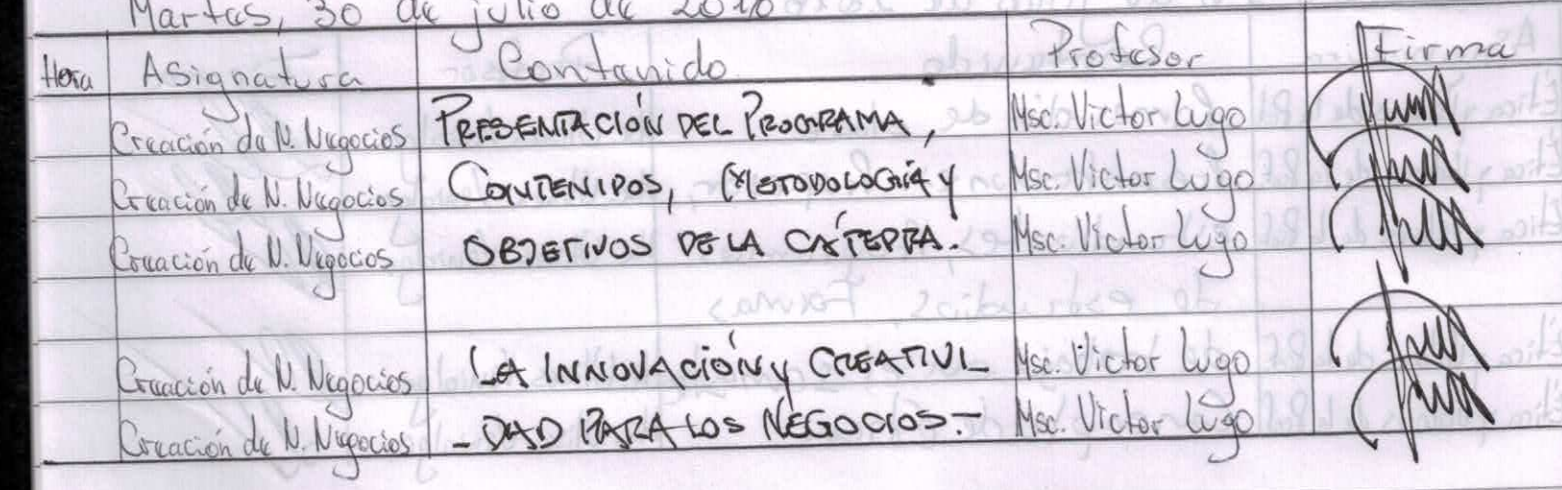 Martes, 30 de julio de
Hora Asignatura Contenido Profesor Firma
Creación de N. Negocios PRESENTACIÓN DEL PROGRAMA, Msc. Victor Lugo
Creación de N. Negocios CONTENIDOS, METODOLOGÍA y Msc. Victor Lugo
Creación de N. Negocios OBJETIVOS DE LA CÁTEDRA. Msc. Victor Lugo
Creación de N. Negocios LA INNOVACIÓN y CREATIVI_ Msc. Victor Lugo
Creación de N. Negocios _DAD PARA LOS NEGOCIOS.- Msc. Victor Lugo